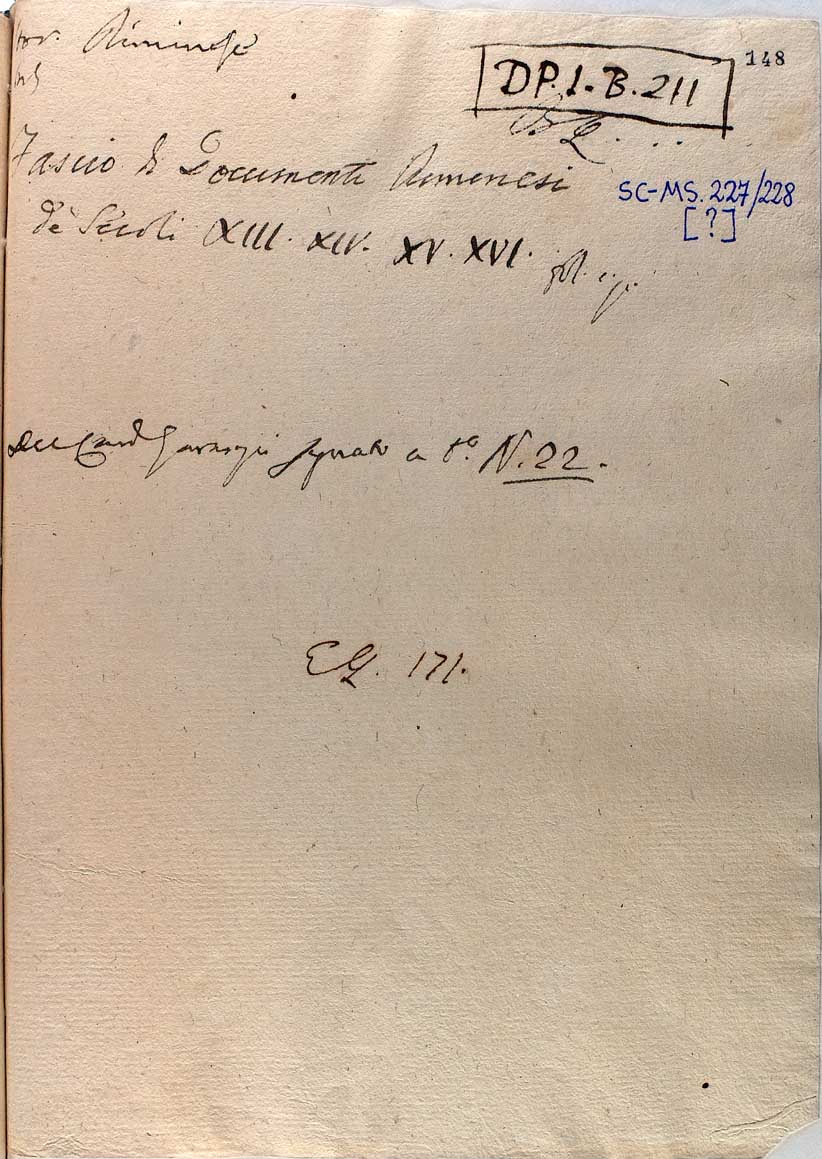 Riminese
148
DP. I. B. 211
Fascio di Documenti Riminesi
SC-MS. 227/228
[?]
de Secoli XIII. XIV. XV. XVI.
Del Card Garampi segnato a t.º N. 22.
EG. 171.